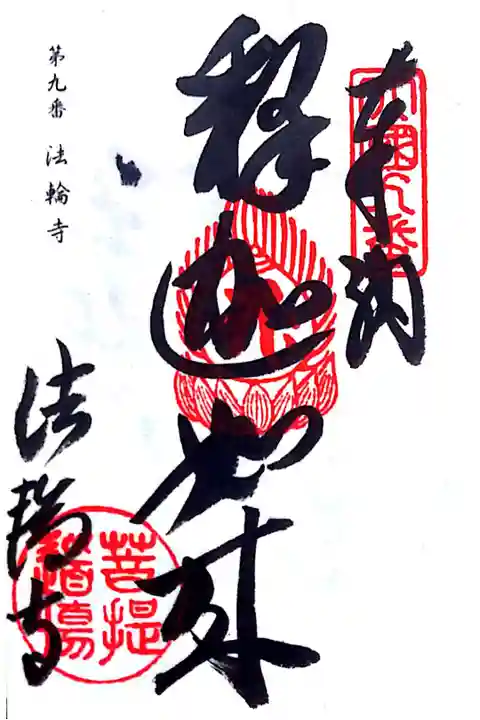 奉納
四國九番
釋迦如来
第九番 法輪寺
法輪寺
菩提道場